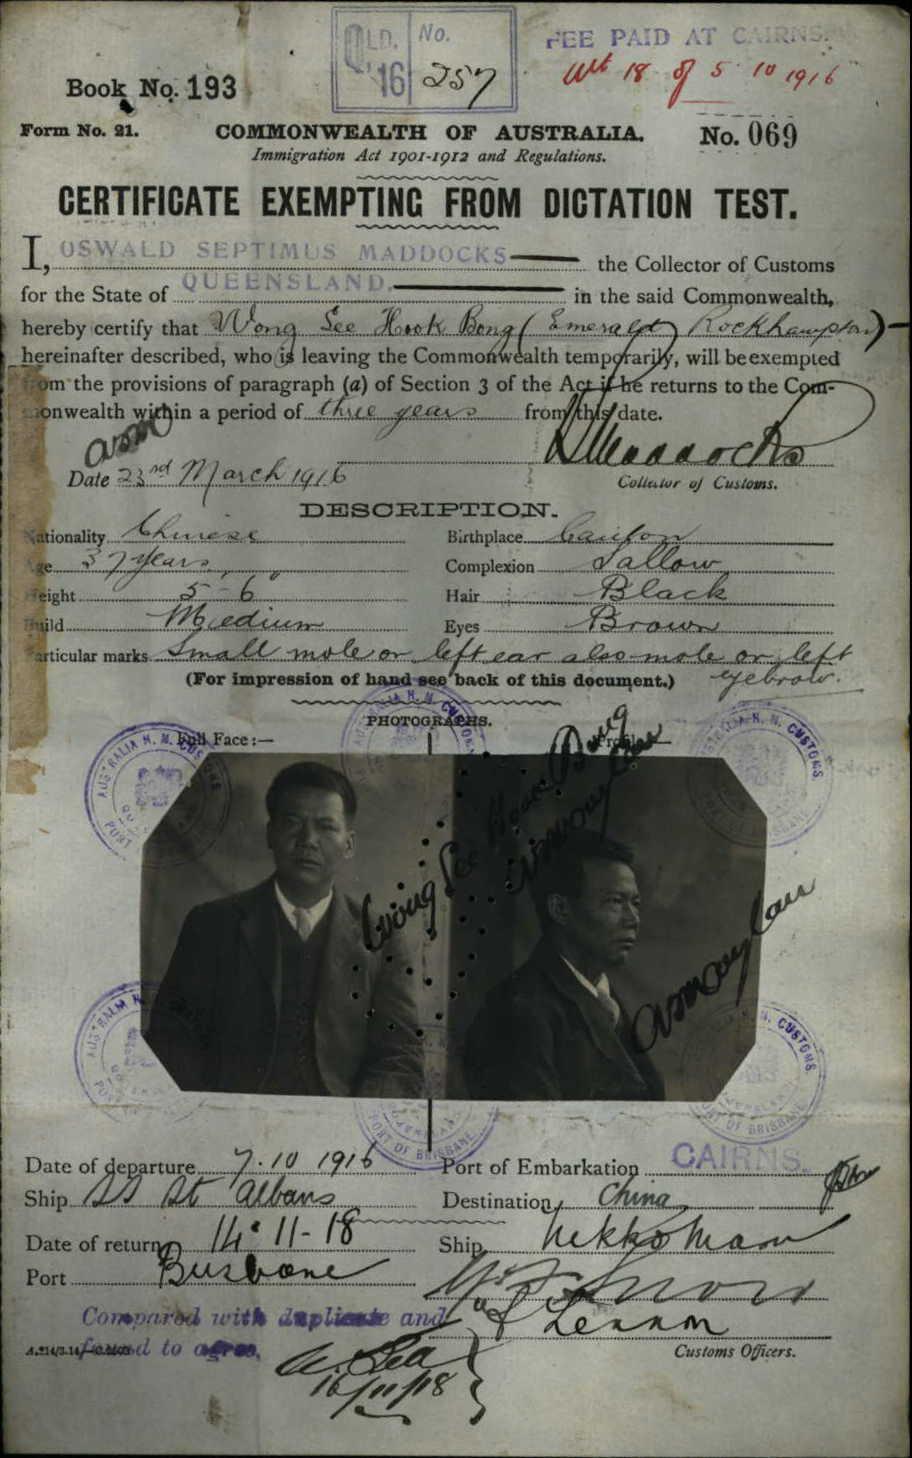 QLD. No.
'16 257
FEE PAID AT CAIRNS.
18 of 5 10 1916
Book No. 193
Form No. 21.
COMMONWEALTH OF AUSTRALIA.
No. 069
Immigration Act 1901-1912 and Regulations.
CERTIFICATE EXEMPTING FROM DICTATION TEST.
I, OSWALD SEPTIMUS MADDOCKS the Collector of Customs
for the State of QUEENSLAND. in the said Commonwealth,
hereby certify that Wong See Hook Bong (Emerald Rockhampton)
hereinafter described, who is leaving the Commonwealth temporarily, will be exempted
from the provisions of paragraph (a) of Section 3 of the Act if he returns to the Com-
monwealth within a period of three years from this date.
Maddocks
Date 23rd March 1916
Collector of Customs.
DESCRIPTION.
Nationality Chinese Birthplace Canton
Age 37 years Complexion Sallow
Height 5' 6" Hair Black
Build Medium Eyes Brown
Particular marks Small mole on left ear also mole on left
eyebrow.
(For impression of hand see back of this document.)
PHOTOGRAPHS.
Full Face:— Profile:—
AUSTRALIA H. M. CUSTOMS
PORT OF BRISBANE
Wong See Hook Bong
Date of departure 7.10 1916 Port of Embarkation CAIRNS.
Ship SS St Albans Destination China
Date of return 14.11-18 Ship Nikko Maru
Port Brisbane
Lennon
Compared with duplicate and
found to agree.
16/11/18
Customs Officers.